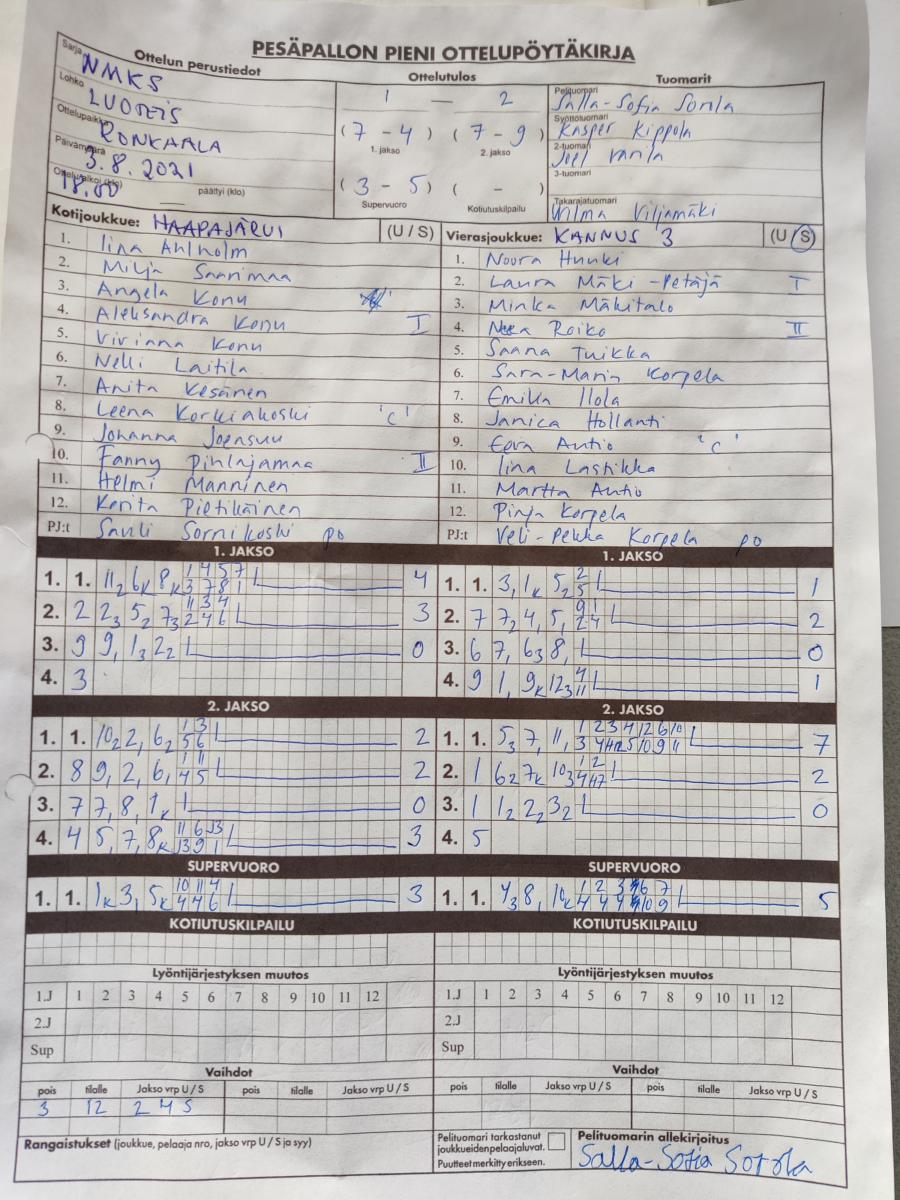 PESÄPALLON PIENI OTTELUPÖYTÄKIRJA
Ottelun perustiedot
Ottelutulos
Tuomarit
Sarja NMKS
Lohko LUOTEIS
Ottelupaikka RONKAALA
Päivämäärä 3.8.2021
18.00
päättyi (klo)
1 — 2
(7 - 4) (7 - 9)
1. jakso 2. jakso
(3 - 5) ( - )
Supervuoro Kotiutuskilpailu
Pelituomari
Salla-Sofia
Syöttötuomari
Kasper Kippola
2-tuomari
Joel
3-tuomari
Takarajatuomari
Vilma Viljamäki
Kotijoukkue: HAAPAJÄRVI (U / S)
1. Iina Ahlholm
2. Milja Saarimaa
3. Angela Konu
4. Aleksandra Konu I
5. Vivianna Konu
6. Nelli Laitila
7. Anita Kesänen
8. Leena Korkiakoski 'c'
9. Johanna Joensuu
10. Fanny Pihlajamaa II
11. Helmi Manninen
12. Kerita Pietikäinen
PJ:t Sauli Sornikoski po
Vierasjoukkue: KANNUS 3 (U / S)
1. Noora Huuki
2. Laura Mäki-Petäjä I
3. Minka Mäkitalo
4. Roiko II
5. Saana Tuikka
6. Sara-Maria Korpela
7. Emilia Ilola
8. Janica Hollanti
9. Eeva Autio 'c'
10. Iina Lastikka
11. Martta Autio
12. Pinja Korpela
PJ:t Veli-Pekka Korpela po
1. JAKSO
1. 1. 11₂ 6ₖ 8ₖ 1 4 5 7 4
3 7 8 1
2. 2 2₃ 5₂ 7₃ 11 3 4 3
2 4 6
3. 9 9, 1₃ 2₂ 0
4. 3
1. JAKSO
1. 1. 3, 1ₖ 5₂ 2 1
5
2. 7 7₂ 4, 5, 9 1 2
2 4
3. 6 7, 6₃ 8, 0
4. 9 1, 9ₖ 12₃ 4 1
11
2. JAKSO
1. 1. 10₂ 2, 6₂ 1 3 2
5 6
2. 8 9, 2, 6, 1 11 2
4 5
3. 7 7, 8, 1ₖ 0
4. 4 5, 7, 8ₖ 11 6 13 3
13 9 1
2. JAKSO
1. 1. 5₃ 7, 11, 1 2 3 4 12 6 10 7
2. 1 6₂ 7ₖ 10₃ 1 2 2
3. 1 1₂ 2₂ 3₂ 0
4. 5
SUPERVUORO
1. 1. 1ₖ 3, 5ₖ 10 11 4 3
4 4 6
SUPERVUORO
1. 1. 4₃ 8, 10ₖ 1 2 3 6 7 5
KOTIUTUSKILPAILU
KOTIUTUSKILPAILU
Lyöntijärjestyksen muutos
1.J 1 2 3 4 5 6 7 8 9 10 11 12
2.J
Sup
Lyöntijärjestyksen muutos
1.J 1 2 3 4 5 6 7 8 9 10 11 12
2.J
Sup
Vaihdot
pois tilalle Jakso vrp U / S pois tilalle Jakso vrp U / S
3 12 2 4 S
Vaihdot
pois tilalle Jakso vrp U / S pois tilalle Jakso vrp U / S
Rangaistukset (joukkue, pelaaja nro, jakso vrp U / S ja syy)
Pelituomari tarkastanut
joukkueiden pelaajaluvat.
Puutteet merkitty erikseen.
Pelituomarin allekirjoitus
Salla-Sofia